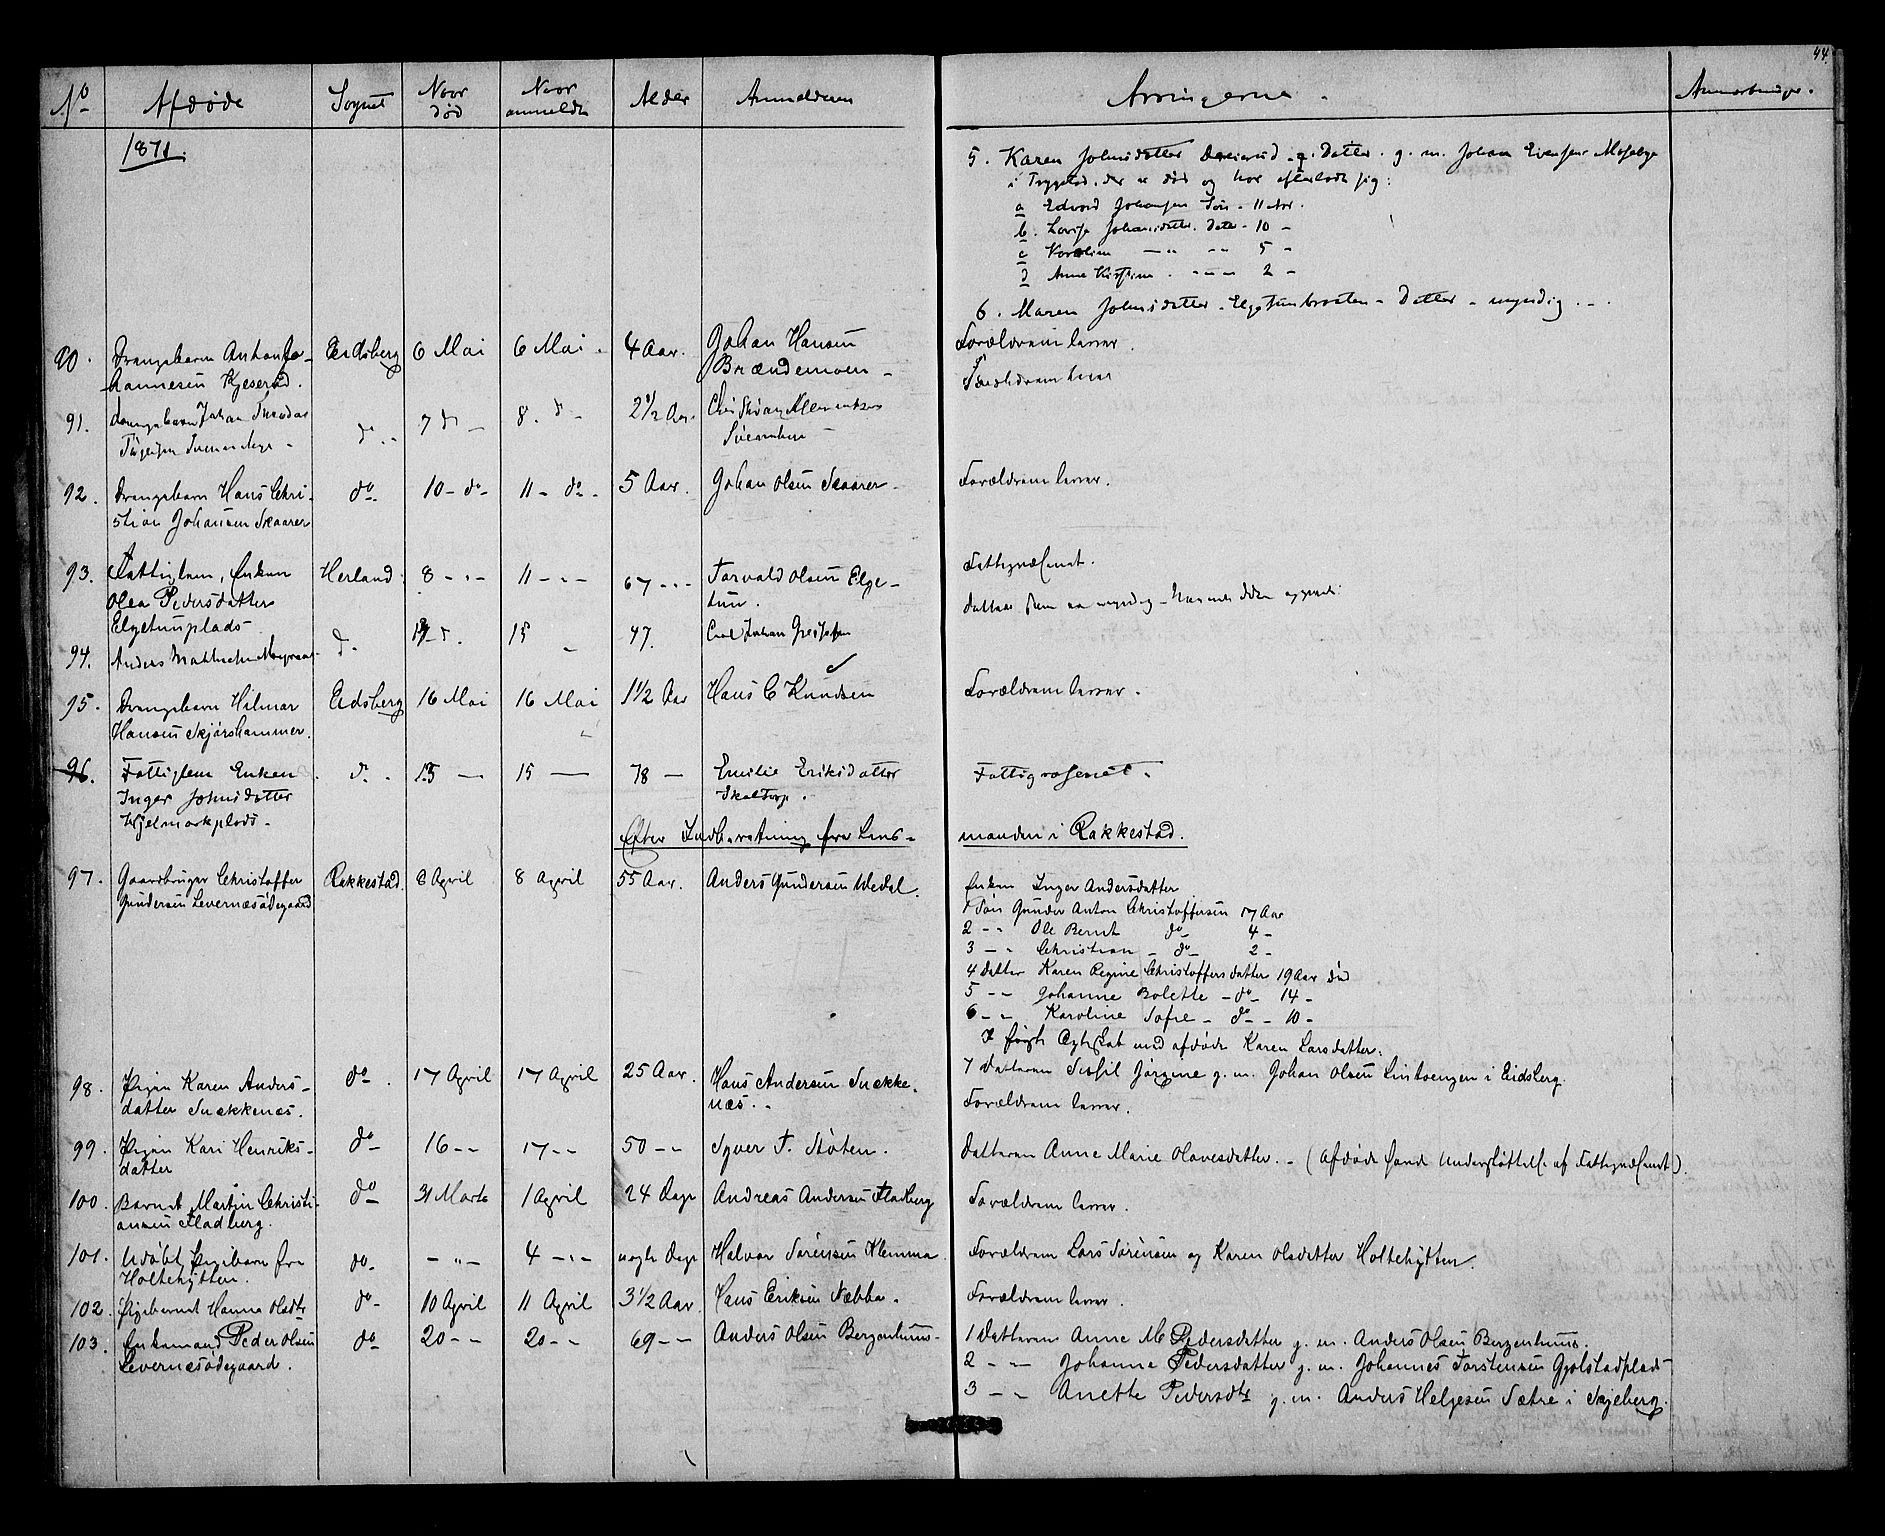 44.
No Afdøde Sognet Naar død Naar anmeldt Alder Anmelderen Arvingerne. Anmærkninger.
1871.
5. Karen Johnsdatter Datter. g. m. Johan Evensen
i Trygstad. der er død og har efterladt sig:
a Edvard Johansen Søn - 11 Aar.
b. Lovise Johansdatter. Datter - 10 -
c Karoline — " -- 5 -
d Anne Kirstine . - - - 2 -
6. Maren Johnsdatter - Elgetunbraaten - Datter - myndig. -.
90. Drengebarn Anton Jo- Eidsberg 6 Mai 6 Mai. 4 Aar. Johan Hansen Forældrene lever.
hannesen Kjeserud. Brændemoen -
91. Drengebarn Johan do.. 7 do - 8. do - 2 1/2 Aar. Christian Forældrene lever
92. Drengebarn Hans Chri- do 10 - do - 11 - do - 5 Aar. Johan Olsen Skaarer - Forældrene lever.
stian Johansen Skaarer
93. Fattiglem, Enken Herland. 8 - " - 11 - " - 67 - " - Torvald Olsen Elge- Fattigvæsenet.
Olea Pedersdatter tun.
Elgetunplads
94. Anders do. 15 47. Carl Johan
95. Drengebarn Hilmar Eidsberg 16 Mai 16 Mai 1 1/2 Aar Hans C Knudsen Forældrene lever.
Hansen Skjørshammer.
96. Fattiglem Enken do. 15 — 15 — 78 — Emilie Eriksdatter Fattigvæsenet.
Inger Johnsdatter Skaltorp.
Hjelmarkplads.
Efter Indberetning fra Lens- manden i Rakkestad.
97. Gaardbruger Christoffer Rakkestad. 8 April 8 April 55 Aar. Anders Gundersen Wedul. Enken Inger Andersdatter
Gundersen Levernæsødegaard 1 Søn Gunder Anton Christoffersen 17 Aar
2 - " Ole Bernt do 4 -
3 - " Christian - do - 2 -
4 Datter Karen Regine Christoffersdatter 19 Aar
5 - " Johanne Bolette - do - 14 -
6 - " Karoline Sofie - do - 10 -
I første Ægteskab med afdøde Karen Larsdatter.
7 Datteren Sissil Jørgine g. m. Johan Olsen Lintvengen i Eidsberg.
98. Pigen Karen Anders- do. 17 April 17 April 25 Aar. Hans Andersen Snække- Forældrene lever.
datter Snekkenæs. næs.
99. Pigen Kari Henriks- do 16 - - 17 - - 50 - - Syver T. Støten. Datteren Anne Marie Olavesdatter. - (Afdøde havde Understøttelse af Fattigvæsenet).
datter
100. Barnet Martin Christi- do 31 Marts 1 April 24 Dage Andreas Andersen Fladberg Forældrene lever.
ansen Fladberg.
101. Udøbt Pigebarn fra do - " - 4 - " - nogle Dage Halvor Sørensen Klemma. Forældrene Lars Sørensen og Karen Olsdatter Holtehytten.
Holtehytten.
102. Pigebarnet Hanna Olsdtr do 10 April 11 April 3 1/2 Aar. Hans Eriksen Næbba. Forældrene lever.
103. Enkemand Peder Olsen do 20 - - 20 - - 69 - - Anders Olsen Bergenhuus. 1 Datteren Anne M Pedersdatter g. m. Anders Olsen Bergenhuus.
Levernæsødegaard. 2 - - Johanne Pedersdatter g. m. Johannes Torstensen Gjølstadplads
3 - - Anette Pedersdtr g. m. Anders Helgesen Sætre i Skjeberg.